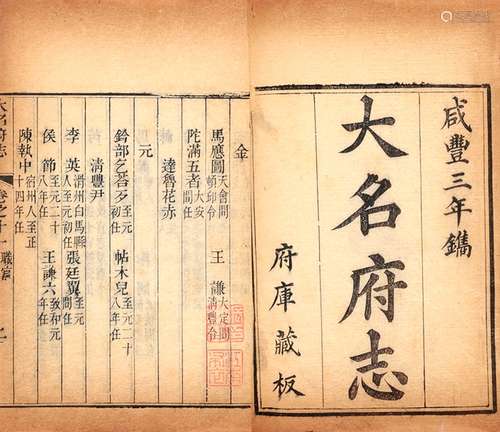 咸豐三年鐫
大名府志
府庫藏板
金
馬應圖 天會間頓邱令 王謙 大定間清豐令
陀滿五者 大安
達魯花赤
元
鈐部乞荅歹 至元初任 帖木兒 至元二十八年任
清豐尹
李英 滑州白馬縣人至元間任 張廷翼
侯節 至元二十八年任 王諫 致和元六年任
陳執中 宿州人至正十四年任
大名府志 卷之十一 職官